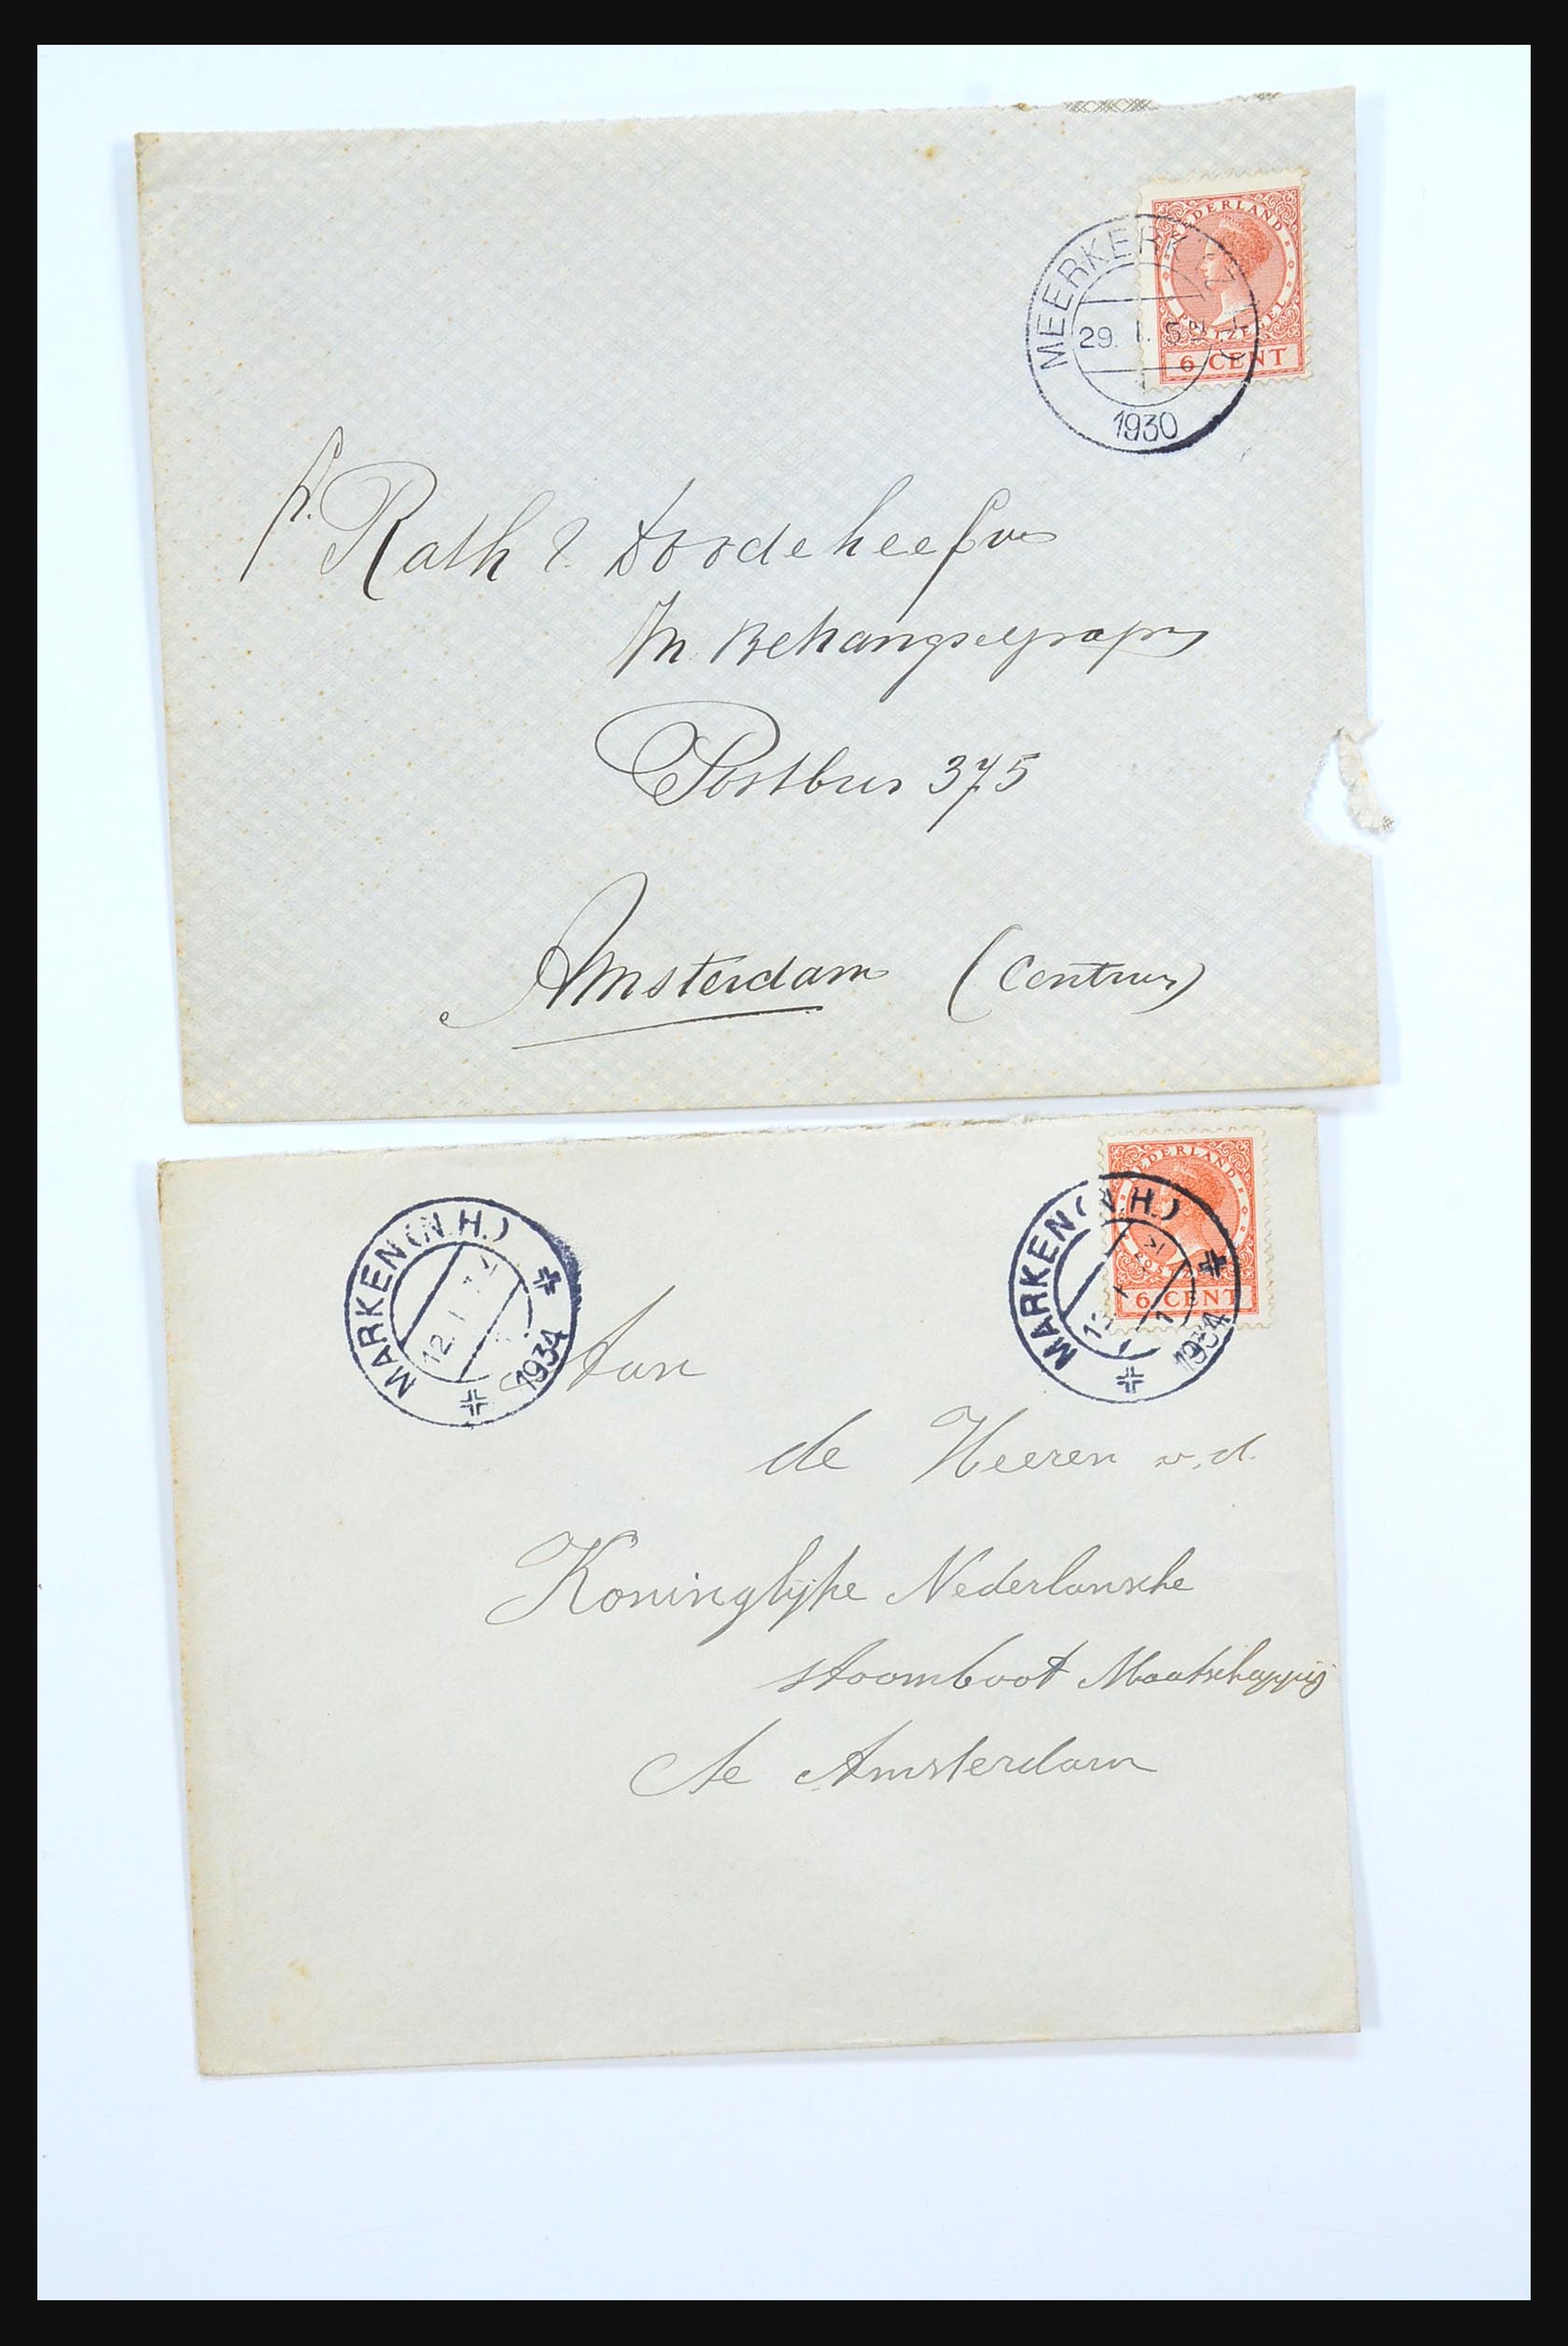 NEDERLAND
POSTZEGEL
6 CENT
MEERKERK (Z.H.)
29. 1. 5
1930
Rath & Doodeheefver
In Behangselpapier
Postbus 375
Amsterdam (Centrum)
NEDERLAND
6 CENT
MARKEN (N.H.)
12 1
1934
MARKEN (N.H.)
1934
Aan
de Heeren v.d.
Koninglijke Nederlansche
Stoomboot Maatschappij
Te Amsterdam